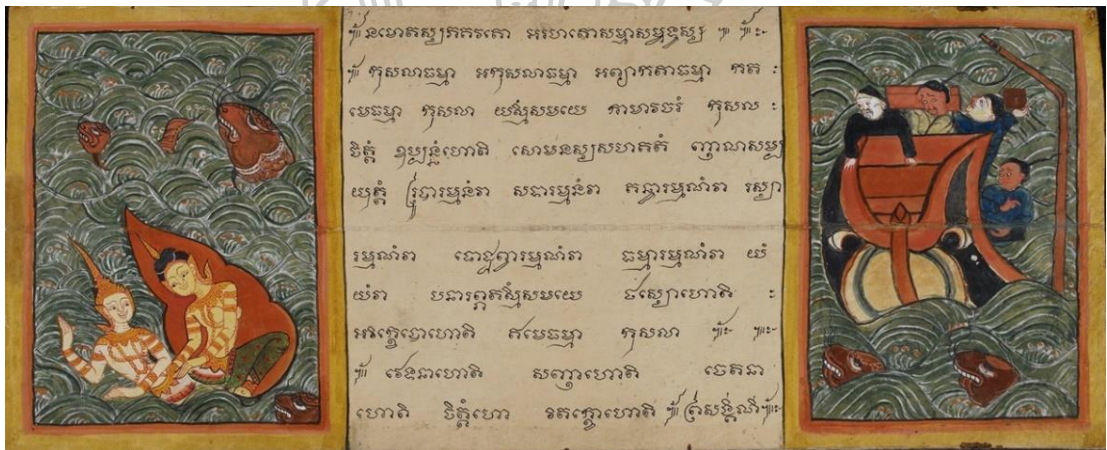 នមោតស្សភគវតោ អរហតោសម្មាសម្ពុទ្ធស្ស
កុសលាធម្មា អកុសលាធម្មា អព្យាកតាធម្មា កត :
មេធម្មា កុសលា យស្មឹសមយេ កាមាវចរំ កុសល :
ចិត្តំ ឧប្បន្នំហោតិ សោមនស្សសហគតំ ញាណសម្ប
យុត្តំ រូបារម្មនំវា សទ្ទារម្មនំវា គន្ធារម្មណំវា រស្សា
រម្មណំវា ផោដ្ឋព្វារម្មណំវា ធម្មារម្មណំវា យំ
យំវា បនារព្ភតស្មឹសមយេ ផស្សោហោតិ :
អវិក្ខេបោហោតិ ឥមេធម្មា កុសលា
វេទនាហោតិ សញ្ញាហោតិ ចេតនា
ហោតិ ចិត្តំហោ វិតក្កោហោតិ ព្រសង្គិណី